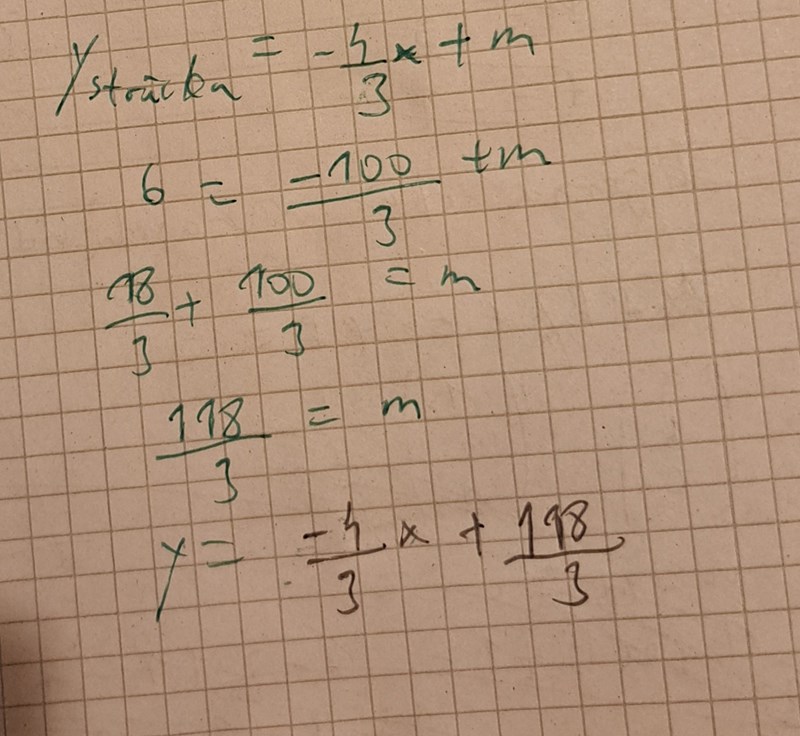 y sträckan = -4/3 x + m
6 = -100/3 + m
18/3 + 100/3 = m
118/3 = m
y = -4/3 x + 118/3